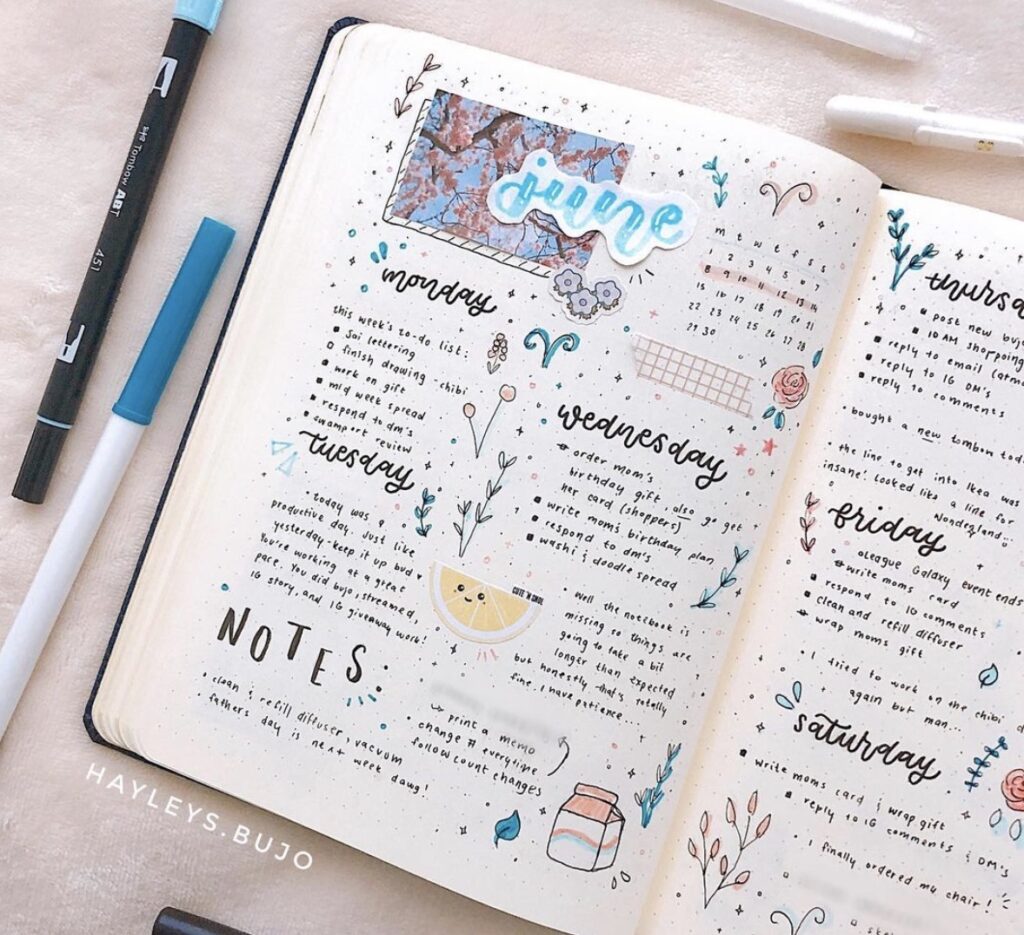 june
m t w t f s s
1 2 3 4 5 6 7
8 9 10 11 12 13 14
15 16 17 18 19 20 21
22 23 24 25 26 27 28
29 30
monday
this week's to-do list:
Sai lettering
finish drawing chibi
work on gift
mid week spread
respond to dm's
swamport review
tuesday
• today was a
productive day. Just like
yesterday-keep it up bud ♥
You're working at a great
pace. You did bujo, streamed,
IG story, and IG giveaway work!
NOTES:
• clean & refill diffuser, vacuum
• fathers day is next
week dawg!
wednesday
order mom's
birthday gift, also go get
her card (shoppers)
write mom's birthday plan
respond to dm's
washi & doodle spread
CUTE 'N SOUR
• Well the notebook is
missing so things are
going to take a bit
longer than expected
but honestly that's totally
fine. I have patience...
↳ print a memo
change # everytime
follow count changes
thursda
post new bujo
10AM shopping
reply to email (atm
reply to IG DM's
reply to comments
• bought a new tombow toda
• the line to get into Ikea was
insane! Looked like a line for
Wonderland...
friday
League Galaxy event ends
write moms card
respond to IG comments
clean and refill diffuser
wrap moms gift
• I tried to work on the chibi d
again but man...
saturday
write moms card & wrap gift
reply to IG comments & DM's
• I finally ordered my chair!
Tombow ABT
451
HAYLEYS.BUJO